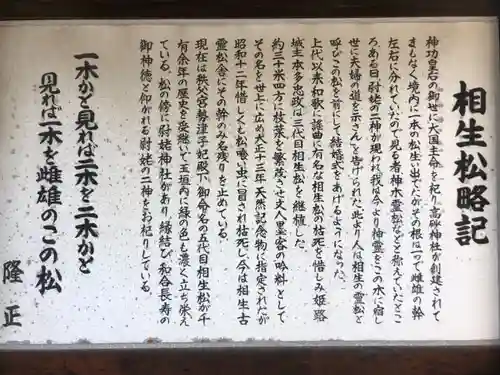 相生松略記
神功皇后の御世に大国主命を祀り高砂神社が創建されて
まもなく境内に一本の松生い出でたがその根は一つで雌雄の幹
左右に分れていたので見る者神木霊松などゝ称えていたとこ
ろある日尉姥の二神が現われ我は今より神霊をこの木に宿し
世に夫婦の道を示さんと告げられた此より人は相生の霊松と
呼びこの松を前にして結婚式をあげるようになった。
上代以来和歌に謡曲に有名な相生松の枯死を惜しみ姫路
城主本多忠政は三代目相生松を継植した。
約三十米四方に枝葉を繁茂させ文人墨客の吟料として
その名を世上に広め大正十三年天然記念物に指定されたが
昭和十二年惜しくも松喰い虫に冒され枯死し今は相生古
霊松舎にその幹のみ名残りを止めている。
現在は秩父宮勢津子妃殿下御命名の五代目相生松が千
有余年の歴史を受継いで玉垣内に緑の色も濃く立ち栄え
ている。松の傍に尉姥神社があり、縁結び、和合長寿の
御神徳と仰がれる尉姥の二神をお祀りしている。
一木かと見れば二木を二木かと
見れば一木を雌雄のこの松
隆正